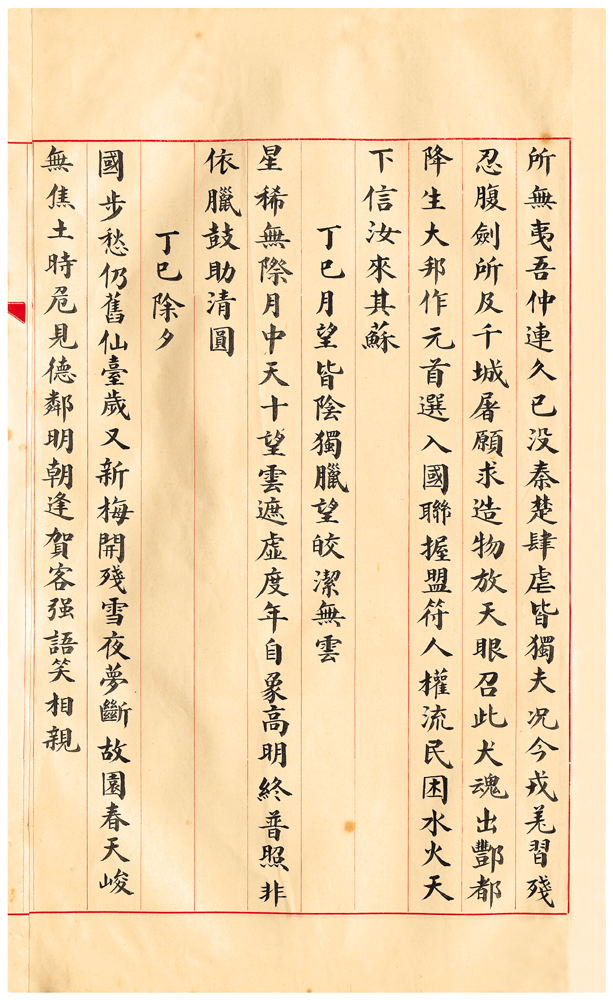 所無夷吾仲連久已没秦楚肆虐皆獨夫况今戎羌習殘
忍腹劍所及千城屠願求造物放天眼召此犬魂出酆都
降生大邦作元首選入國聯握盟符人權流民困水火天
下信汝來其蘇
丁巳月望皆陰獨臘望皎潔無雲
星稀無際月中天十望雲遮虛度年自象高明終普照非
依臘鼓助清圓
丁巳除夕
國步愁仍舊仙臺歲又新梅開殘雪夜夢斷故園春天峻
無焦土時危見德鄰明朝逢賀客强語笑相親